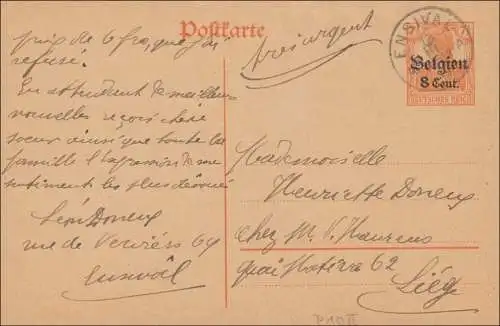 Postkarte
prix de 6 frs, que j'ai
refusé.
très urgent
ENSIVAL
Belgien
8 Cent.
DEUTSCHES REICH
En attendant de meilleures
nouvelles reçois chère
soeur ainsi que toute la
famille l'expression de mes
sentiments les plus dévoués
Léon Doneux
rue de Verviers 69
Ensival
Mademoiselle
Henriette Doneux
chez M. V.
quai 62
Liége